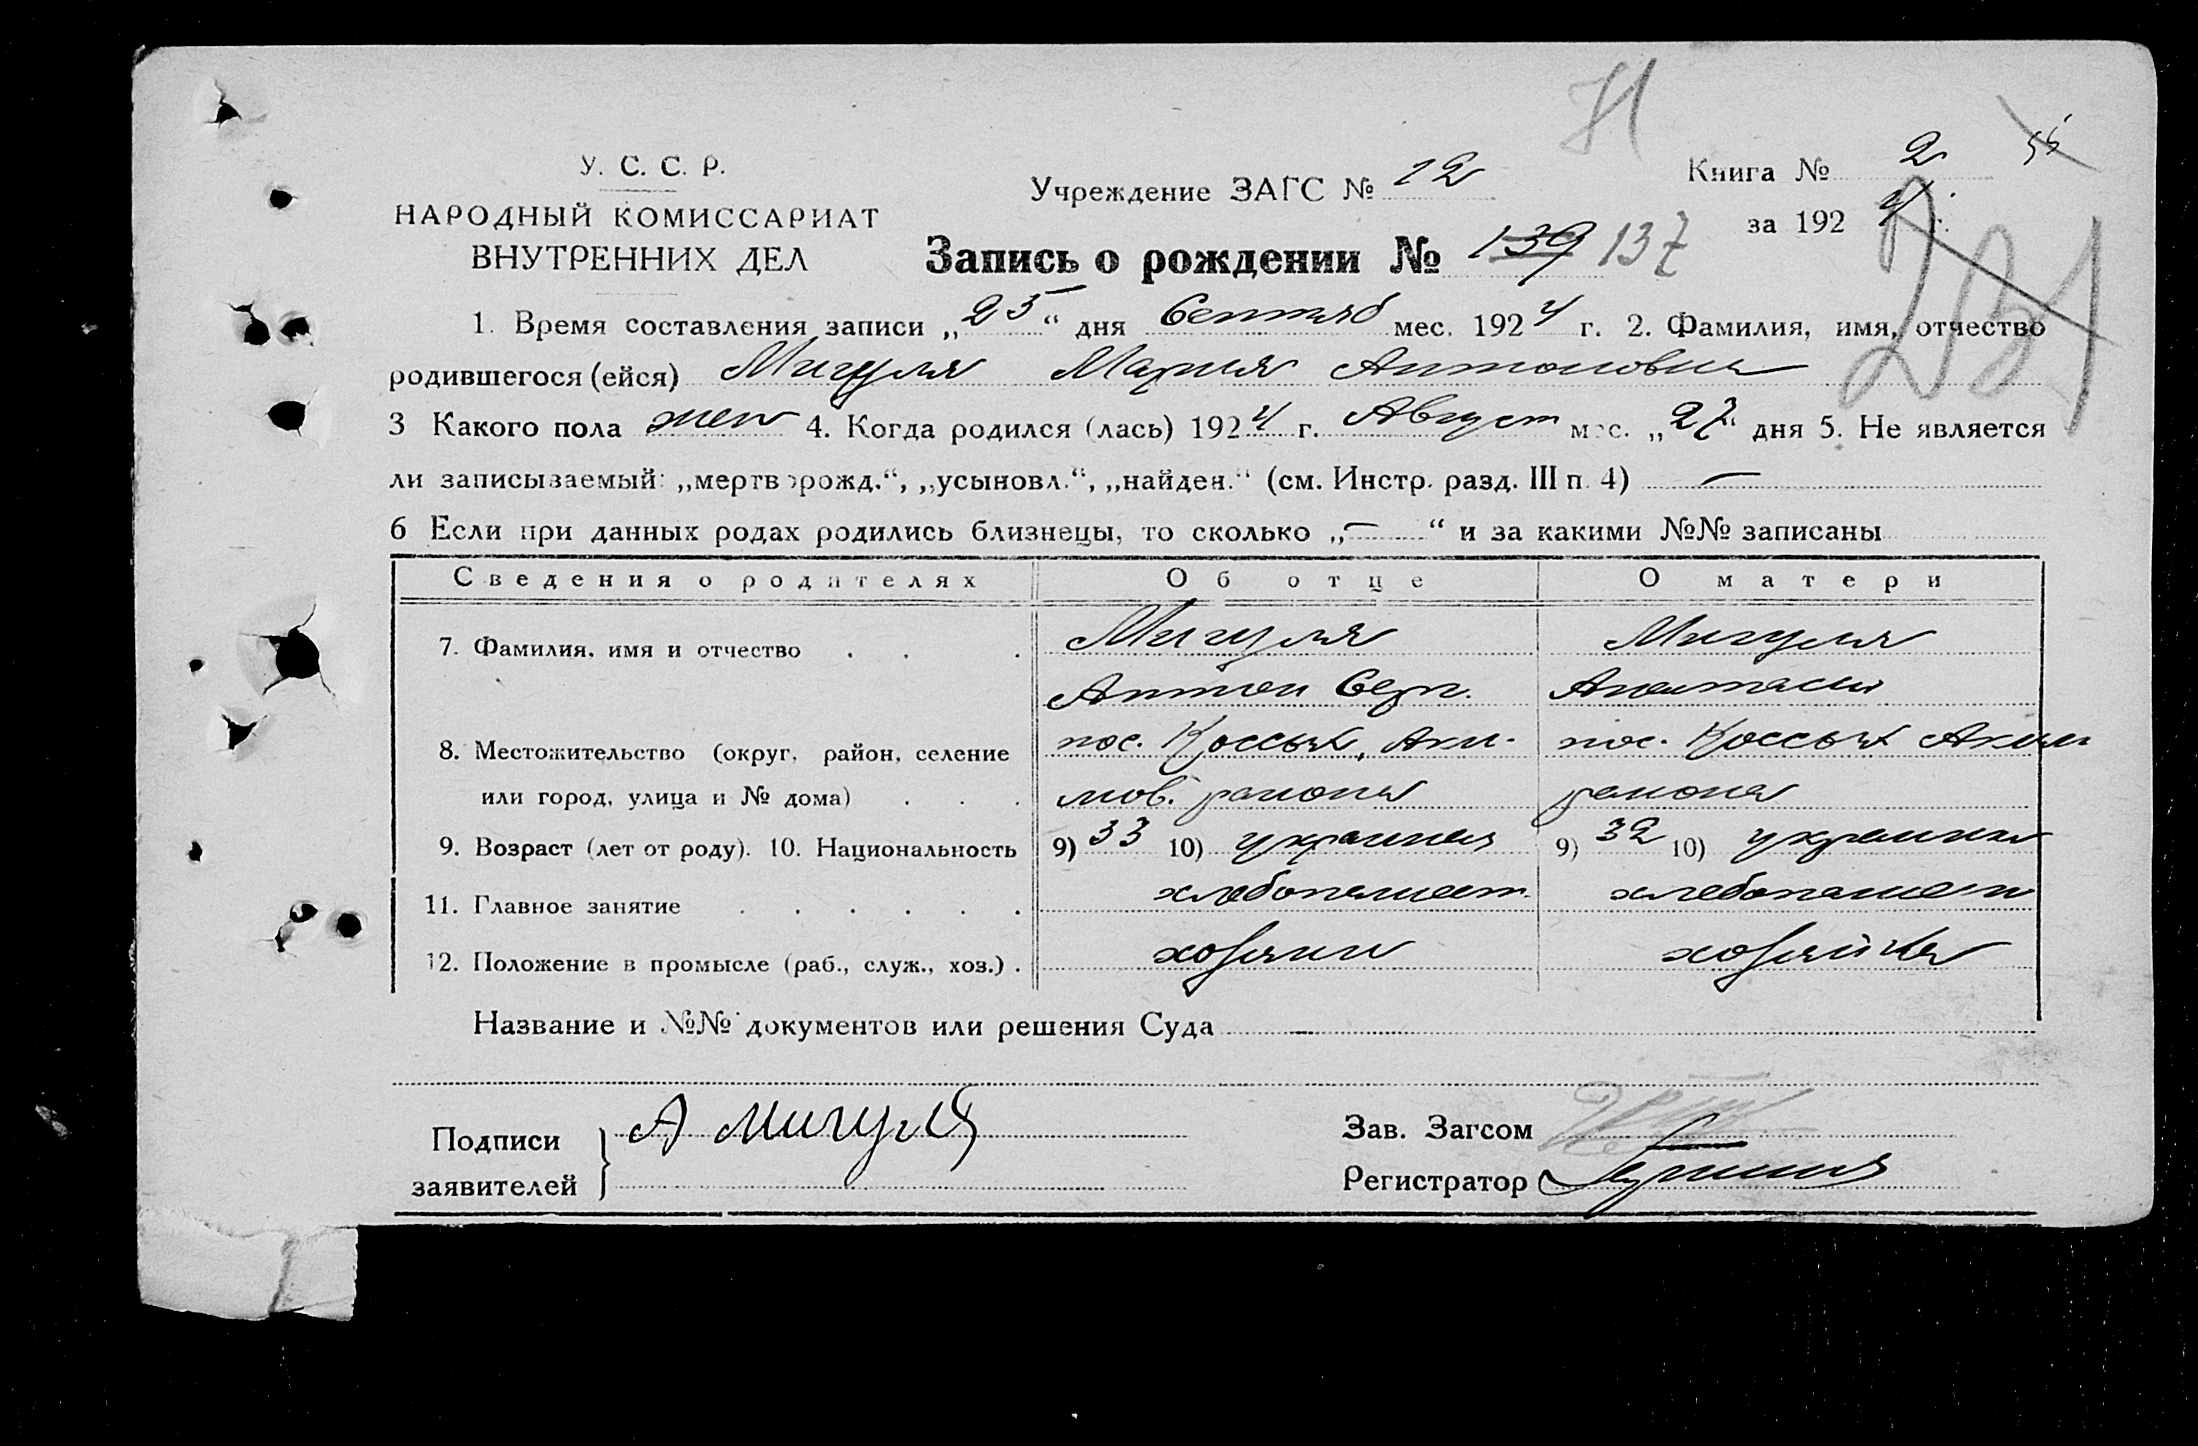 У. С. С. Р.
НАРОДНЫЙ КОМИССАРИАТ
ВНУТРЕННИХ ДЕЛ
Учреждение ЗАГС № 12
Книга № 2
за 192 4 г.
Запись о рождении № 139 137
1. Время составления записи „25“ дня Сентяб мес. 1924 г. 2. Фамилия, имя, отчество
родившегося (ейся) Мигуля Мария Антоновна
3 Какого пола жен 4. Когда родился (лась) 1924 г. Август мес. „27“ дня 5. Не является
ли записываемый: „мертворожд.“, „усыновл.“, „найден.“ (см. Инстр. разд. III п. 4) —
6 Если при данных родах родились близнецы, то сколько „—“ и за какими №№ записаны
Сведения о родителях Об отце О матери
7. Фамилия, имя и отчество . . . Мигуля Мигуля
Антон Серг. Анастасия
8. Местожительство (округ, район, селение пос. Коссых, Аки- пос. Коссых Аким
или город, улица и № дома) . . . мов. района района
9. Возраст (лет от роду). 10. Национальность 9) 33 10) украинец 9) 32 10) украинка
11. Главное занятие . . . . . . хлебопашест. хлебопашест
12. Положение в промысле (раб., служ., хоз.) . хозяин хозяйка
Название и №№ документов или решения Суда —
Подписи
заявителей
А Мигуля
Зав. Загсом
Регистратор